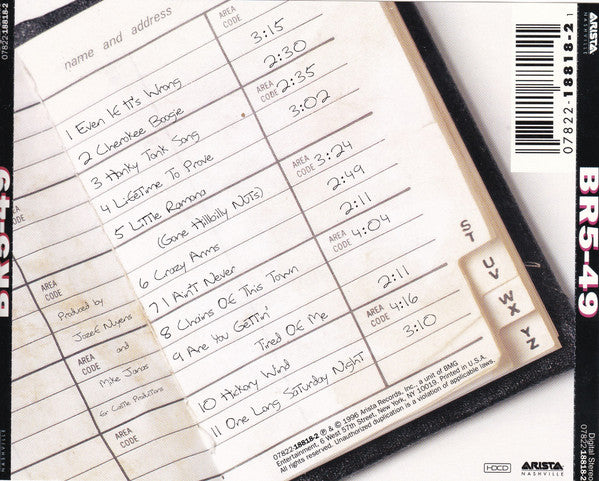 name and address
AREA CODE
1 Even If It's Wrong 3:15
2 Cherokee Boogie 2:30
AREA CODE
3 Honky Tonk Song 2:35
4 LifeTime To Prove 3:02
5 Little Ramona
(Gone Hillbilly Nuts)
AREA CODE
3:24
6 Crazy Arms 2:49
7 I Ain't Never 2:11
AREA CODE
8 Chains Of This Town 4:04
9 Are You Gettin'
Tired Of Me 2:11
AREA CODE
10 Hickory Wind 4:16
11 One Long Saturday Night 3:10
AREA CODE
AREA CODE
Produced by
Jozef Nuyens
AREA CODE
and
Mike Janas
for Castle Productions
AREA CODE
ST
UV
WX
YZ
07822-18818-2 ℗ & © 1996 Arista Records, Inc., a unit of BMG
Entertainment, 6 West 57th Street, New York, NY 10019. Printed in U.S.A.
All rights reserved. Unauthorized duplication is a violation of applicable laws.
HDCD
ARISTA
NASHVILLE
07822-18818-2
1
ARISTA
NASHVILLE
BR5-49
Digital Stereo
07822-18818-2
07822-18818-2
BR5-49
NASHVILLE